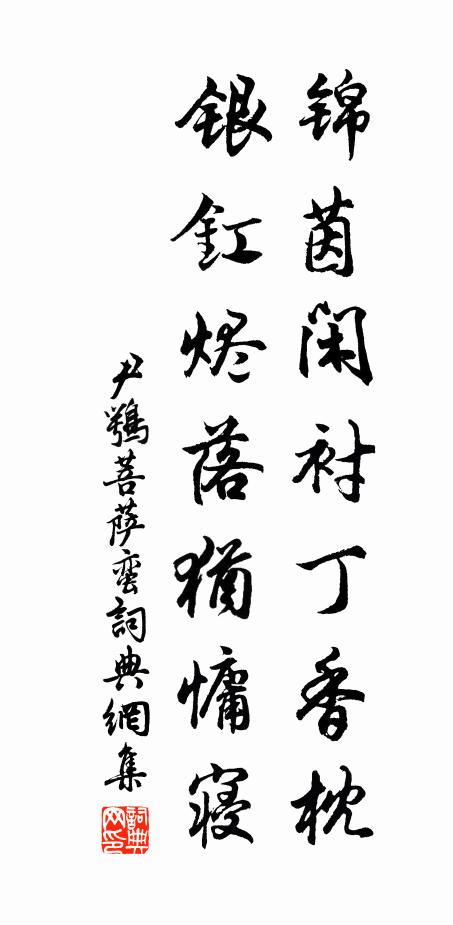 锦茵闲衬丁香枕
银釭烬落犹慵寝
尹鶚菩萨蛮詞典網集
詞典网印